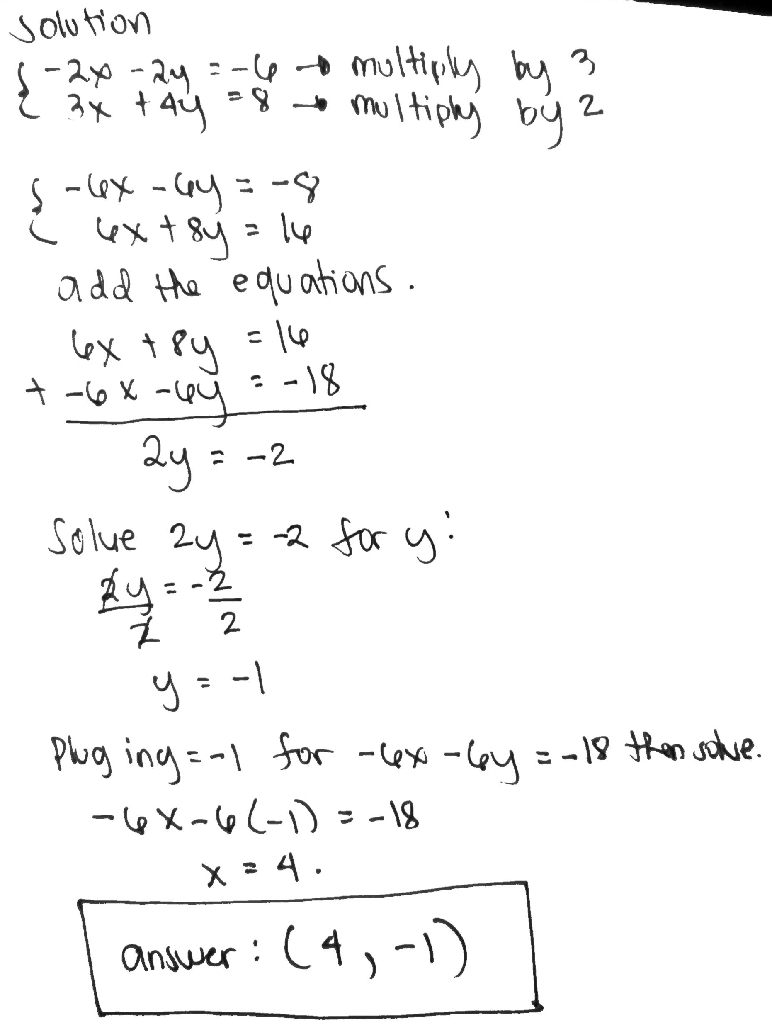 solution
{ -2x - 2y = -6 → multiply by 3
3x + 4y = 8 → multiply by 2
{ -6x - 6y = -8
6x + 8y = 16
add the equations.
6x + 8y = 16
+ -6x - 6y = -18
2y = -2
Solve 2y = -2 for y:
2y = -2
2 2
y = -1
Plug in y = -1 for -6x - 6y = -18 then solve.
-6x - 6(-1) = -18
x = 4.
answer: (4, -1)